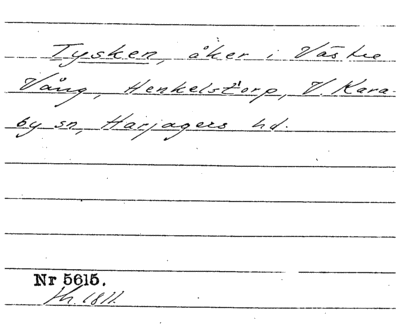 Tysken, åker i Västre
Vång, Henkelstorp, V. Kara-
by sn, Harjagers hd.
Nr 5615.
1811.